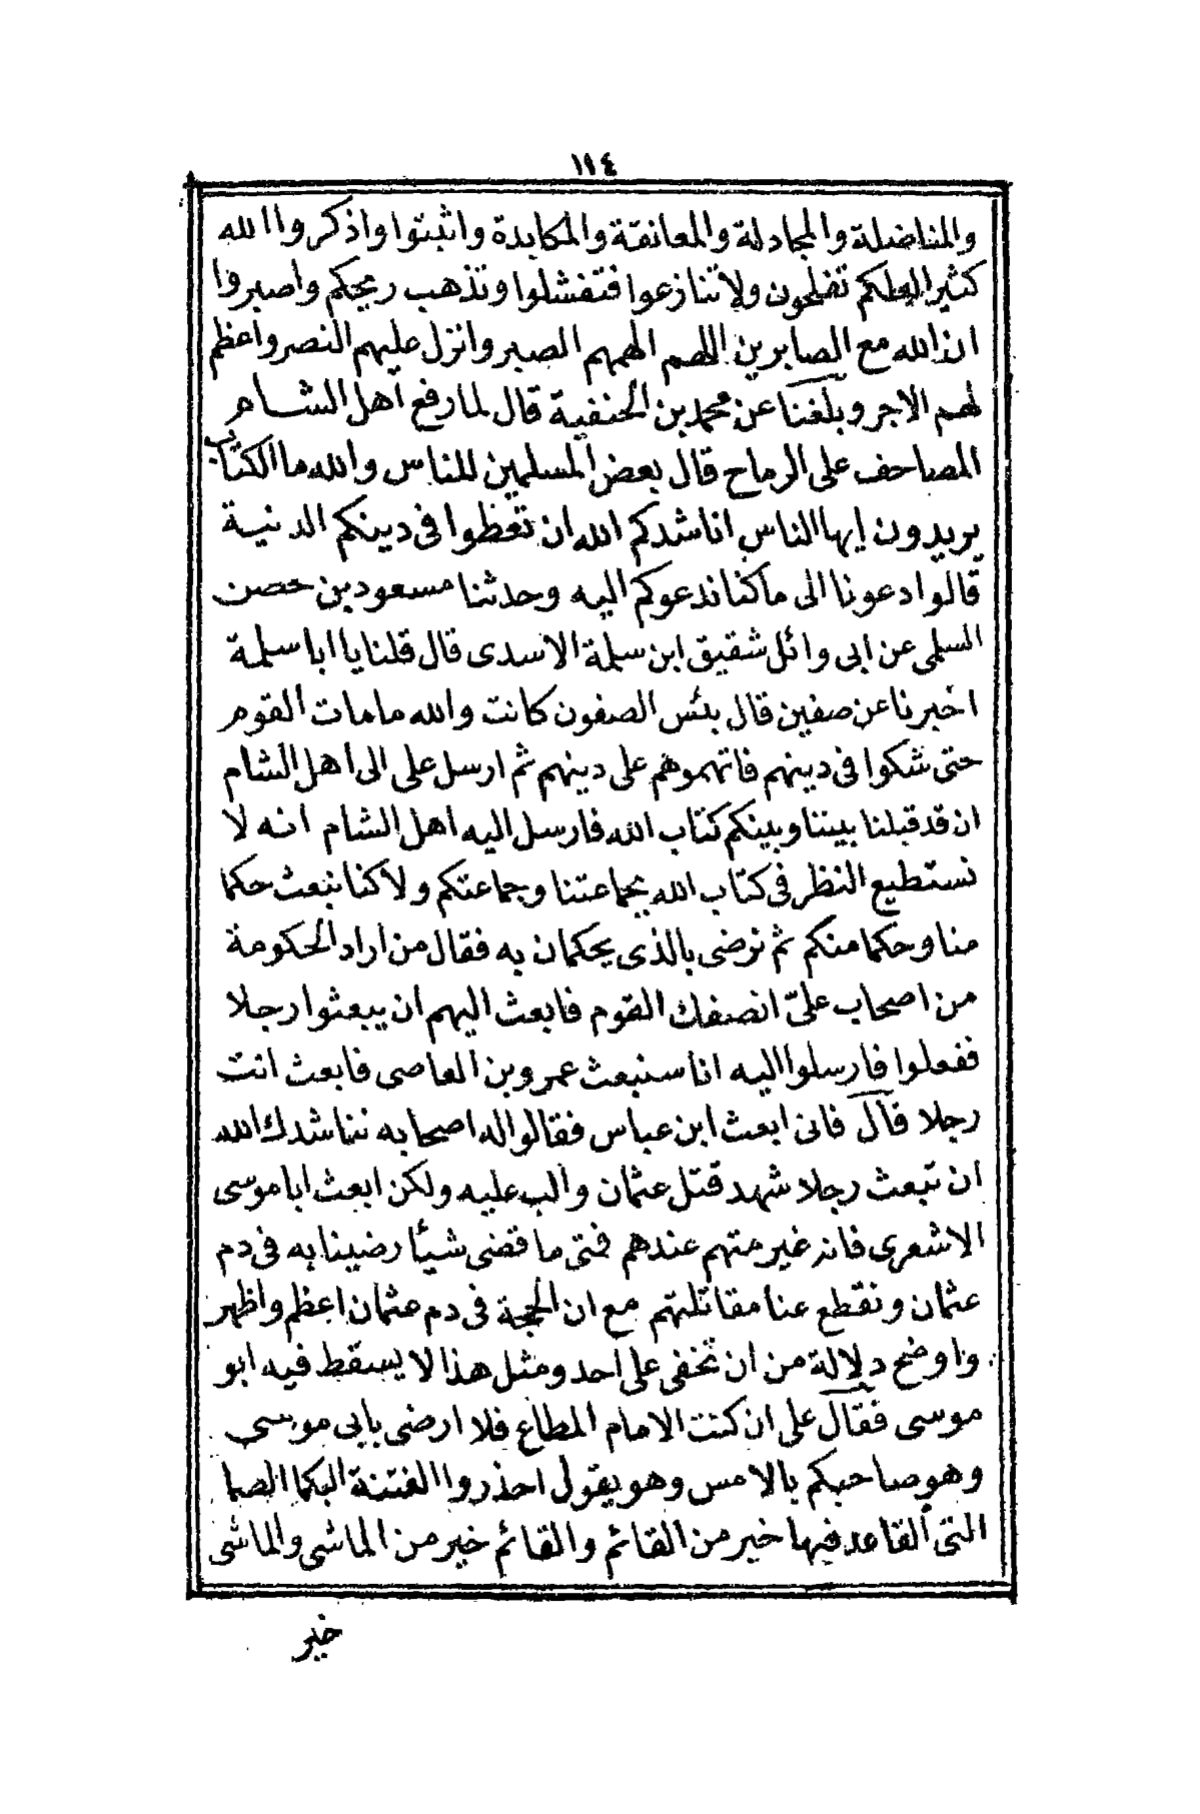 ١١٤
والمناضلة والمجادلة والمعانقة والمكابدة واثبتوا واذكروا الله
كثيرا لعلكم تفلحون ولا تنازعوا فتفشلوا وتذهب ريحكم واصبروا
ان الله مع الصابرين اللهم الهمهم الصبر وانزل عليهم النصر واعظم
لهم الاجر وبلغنا عن محمد بن الحنفية قال لما رفع اهل الشام
المصاحف على الرماح قال بعض المسلمين للناس والله ما الكتاب
يريدون ايها الناس اناشدكم الله ان تعطوا فى دينكم الدنية
قالوا دعونا الى ما كنا ندعوكم اليه وحدثنا مسعود بن حصن
السلمى عن ابى وائل شقيق ابن سلمة الاسدى قال قلنا يا ابا سلمة
اخبرنا عن صفين قال بئس الصفون كانت والله ما مات القوم
حتى شكوا فى دينهم فاتهموهم على دينهم ثم ارسل على الى اهل الشام
ان قد قبلنا بيننا وبينكم كتاب الله فارسل اليه اهل الشام انه لا
نستطيع النظر فى كتاب الله بجماعتنا وجماعتكم ولاكنا نبعث حكما
منا وحكما منكم ثم نرضى بالذى يحكمان به فقال من اراد الحكومة
من اصحاب علىّ انصفك القوم فابعث اليهم ان يبعثوا رجلا
ففعلوا فارسلوا اليه انا سنبعث عمرو بن العاصى فابعث انت
رجلا قال فانى ابعث ابن عباس فقالوا له اصحابه نناشدك الله
ان تبعث رجلا شهد قتل عثمان والب عليه ولكن ابعث ابا موسى
الاشعرى فانه غير متهم عندهم فمتى ما قضى شيأ رضينا به فى دم
عثمان ونقطع عنا مقاتلتهم مع ان الحجة فى دم عثمان اعظم واظهر
واوضح دلالة من ان تخفى على احد ومثل هذا لا يسقط فيه ابو
موسى فقال على ان كنت الامام المطاع فلا ارضى بابى موسى
وهو صاحبكم بالامس وهو يقول احذروا الفتنة البكما الصما
التى القاعد فيها خير من القائم والقائم خير من الماشى والماشى
خير